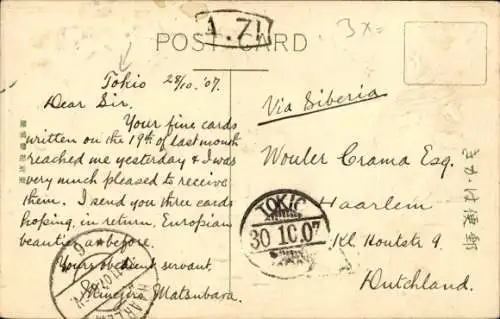 A.Z!
3x=
POST CARD
Tokio 28/10. '07.
Dear Sir.
Your fine cards
written on the 19th of last month
reached me yesterday & I was
very much pleased to receive
them. I send you three cards
hoping, in return, Europian
beauties as before.
Your obedient servant
Matsubara.
Via Siberia
Wouler Crama Esq.
Haarlem
Kl. Houtstr 9.
Dutchland.
TOKIO
30.10.07
HAARLEM